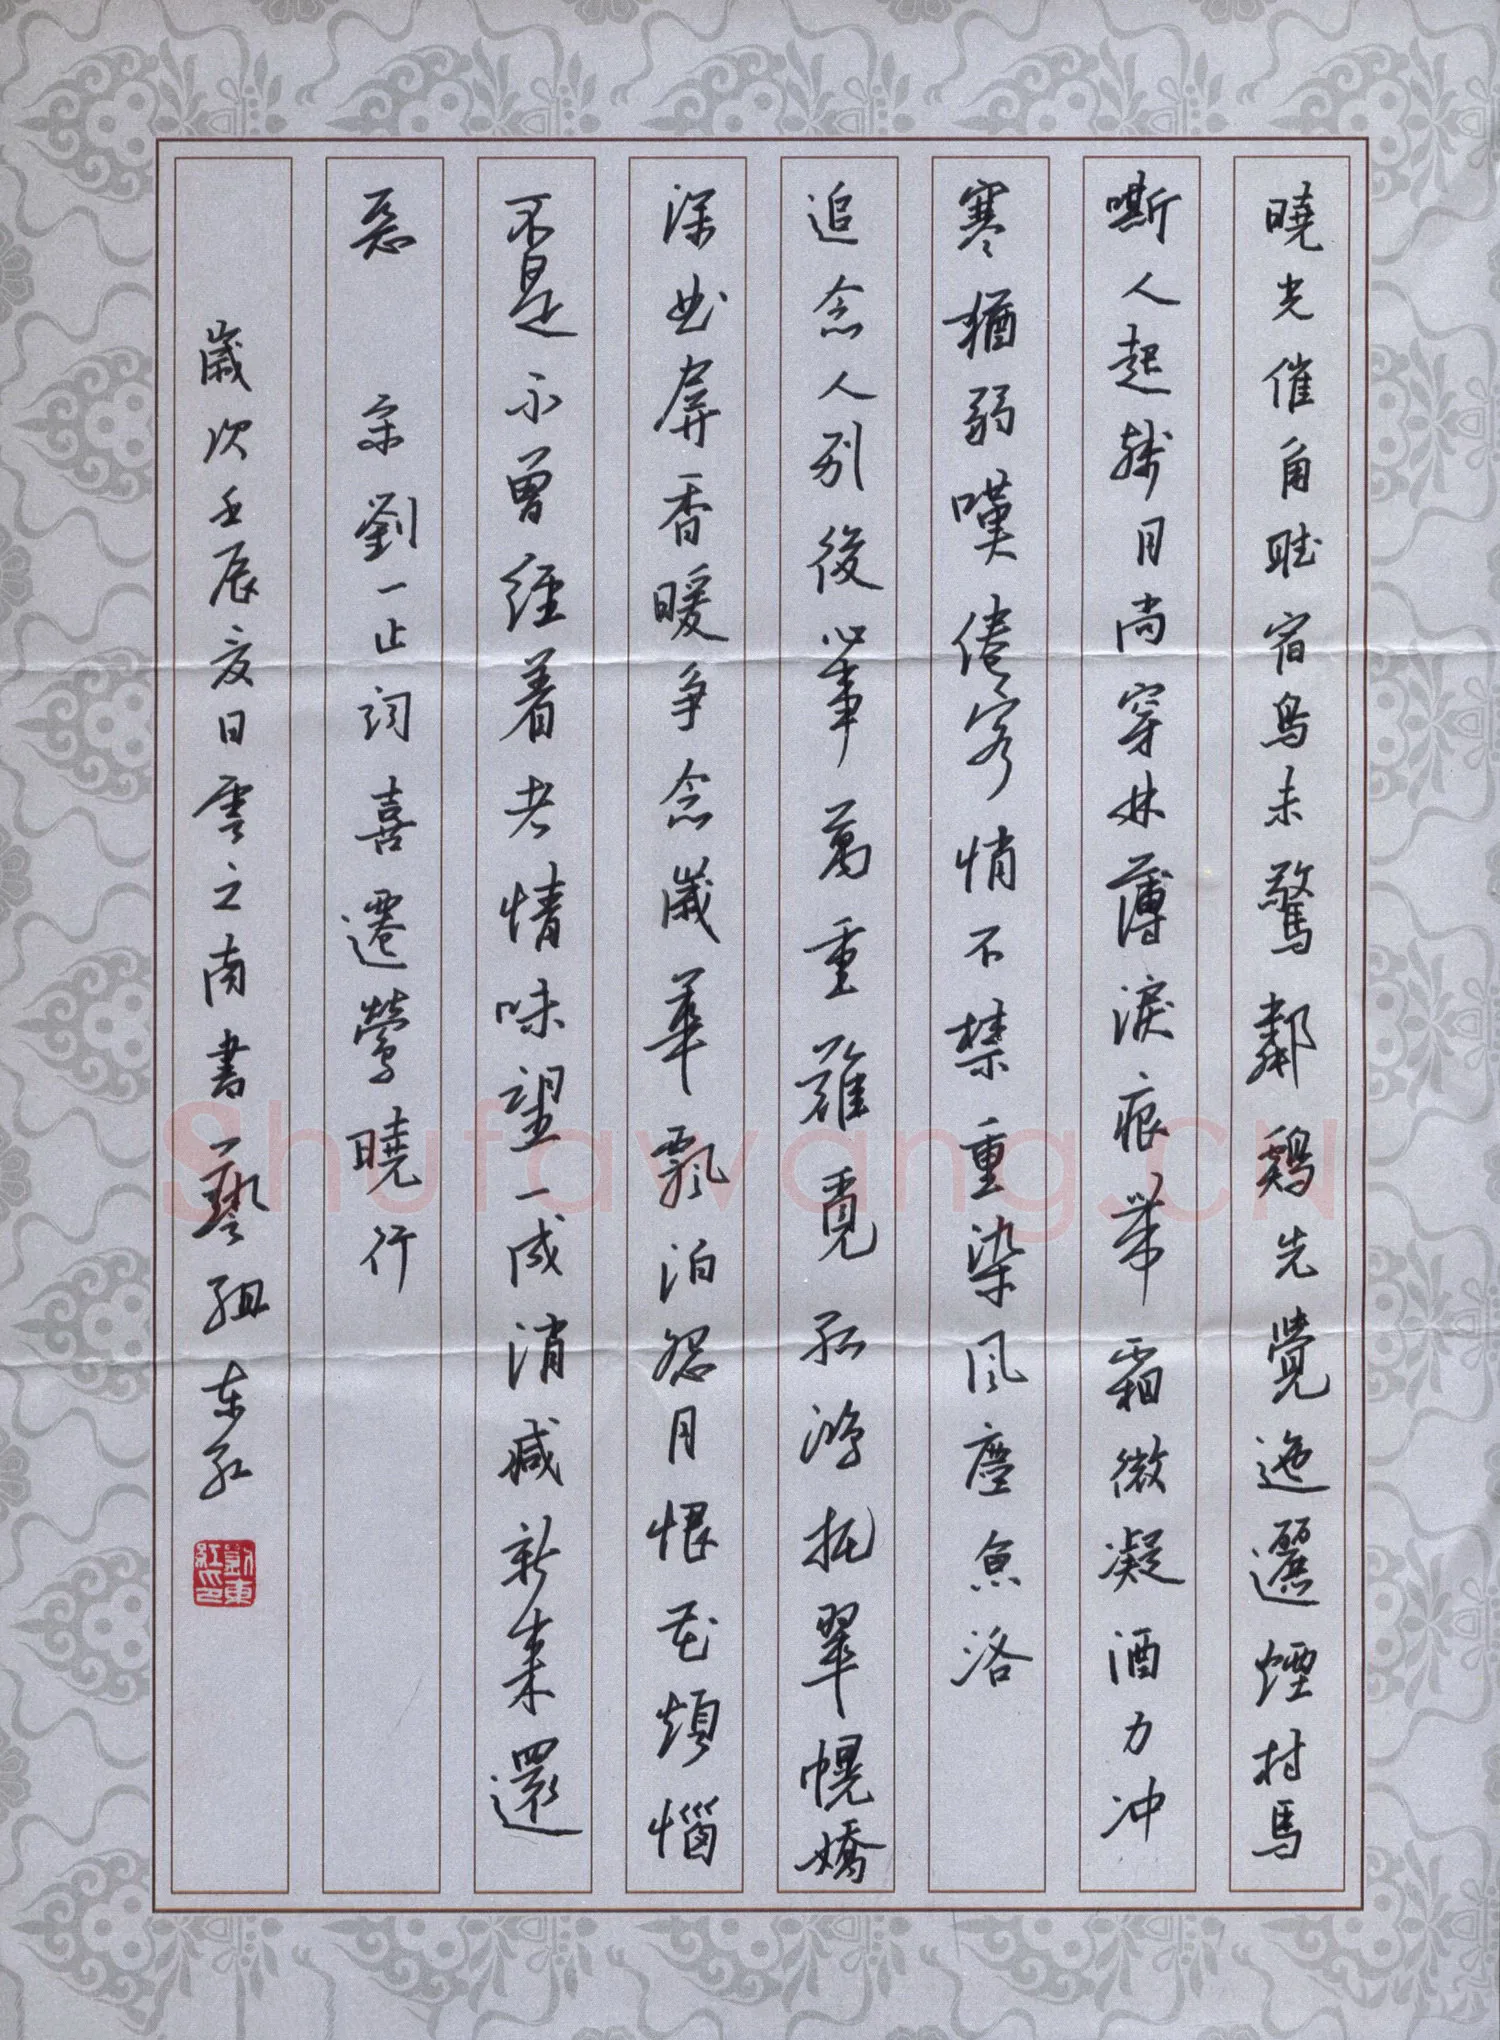 曉光催角聽宿鳥未驚鄰鷄先覺迤邐煙村馬
嘶人起殘月尚穿林薄淚痕帶霜微凝酒力冲
寒猶弱嘆倦客悄不禁重染風塵京洛
追念人別後心事萬重難覓孤鴻托翠幌嬌
深曲屏香暖爭念歲華飄泊怨月恨花煩惱
不是不曾經着者情味望一成消減新來還
惡 宋劉一止詞喜遷鶯曉行
歲次壬辰夏日雲之南書藝組東紅
劉東紅印
Shufawang.CN